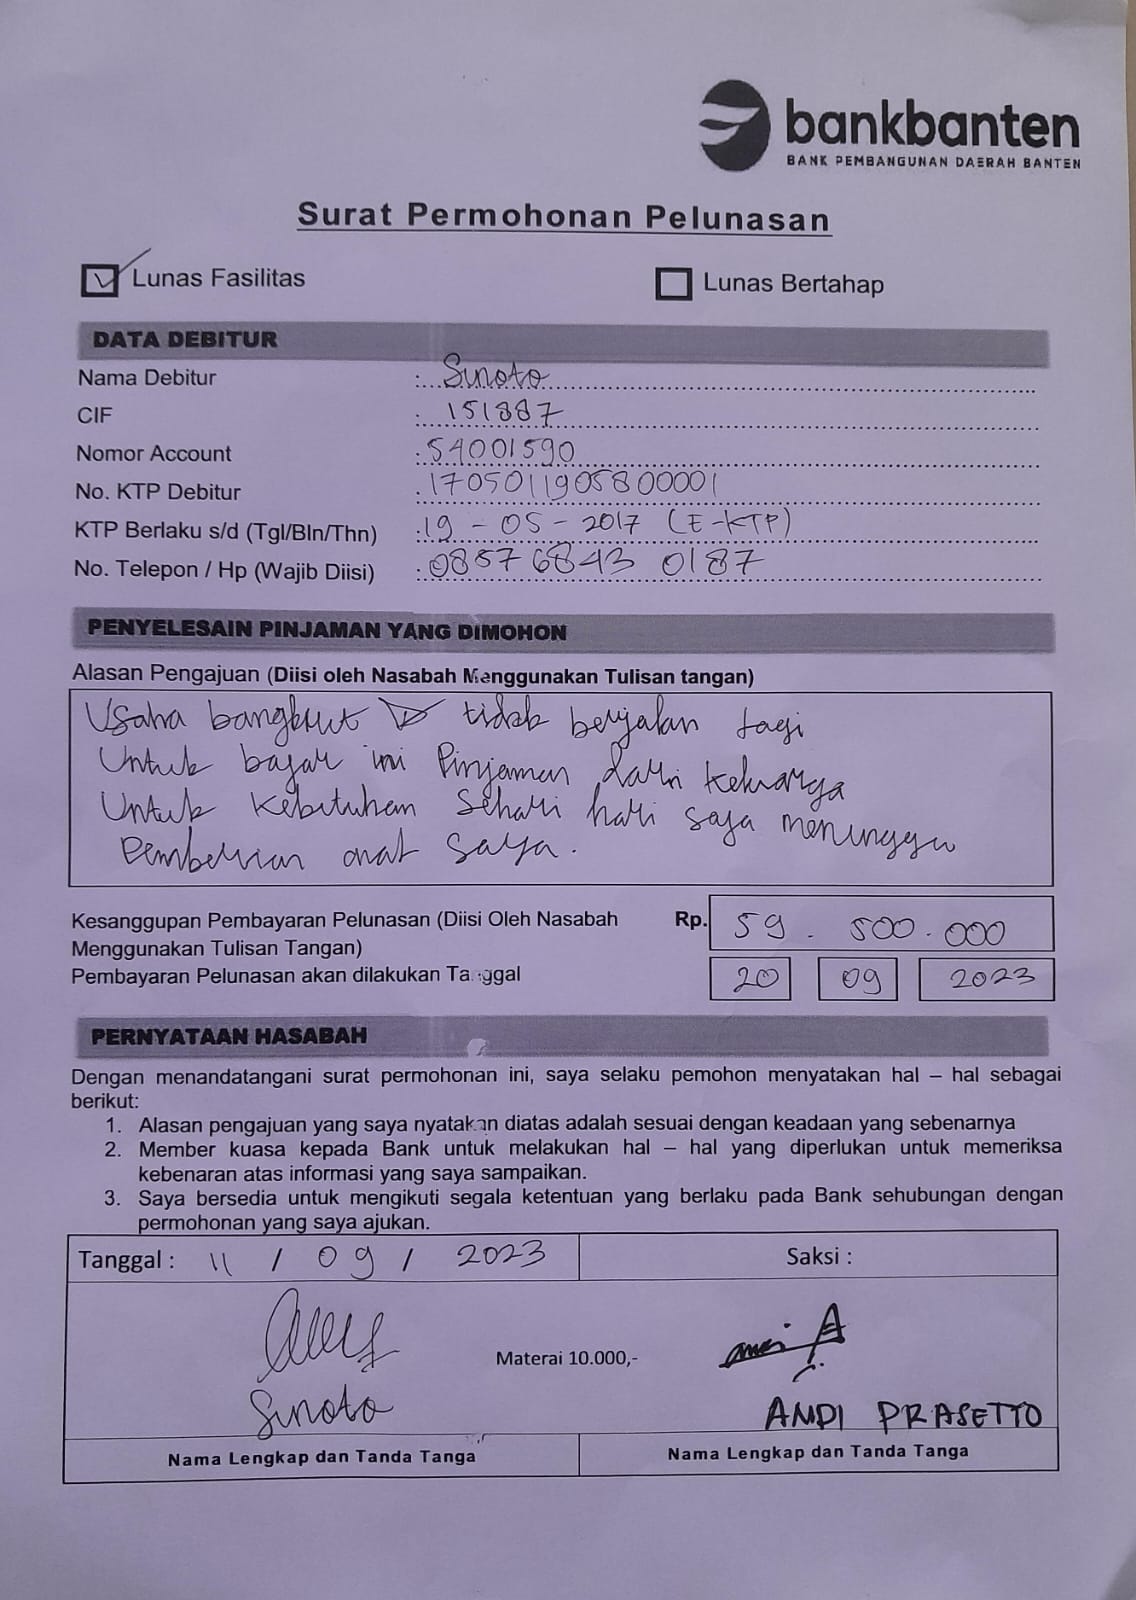 bankbanten
BANK PEMBANGUNAN DAERAH BANTEN
Surat Permohonan Pelunasan
Lunas Fasilitas
Lunas Bertahap
DATA DEBITUR
Nama Debitur : Sinoto
CIF : 151887
Nomor Account : 54001590
No. KTP Debitur : 1705011905800001
KTP Berlaku s/d (Tgl/Bln/Thn) : 19 - 05 - 2017 (E-KTP)
No. Telepon / Hp (Wajib Diisi) : 08576843 0187
PENYELESAIN PINJAMAN YANG DIMOHON
Alasan Pengajuan (Diisi oleh Nasabah Menggunakan Tulisan tangan)
Usaha bangkrut tidak berjalan lagi
Untuk bayar ini Pinjaman dari keluarga
Untuk kebutuhan sehari hari saya menunggu
Pemberian anak saya.
Kesanggupan Pembayaran Pelunasan (Diisi Oleh Nasabah Rp. 59. 500.000
Menggunakan Tulisan Tangan)
Pembayaran Pelunasan akan dilakukan Tanggal 20 09 2023
PERNYATAAN HASABAH
Dengan menandatangani surat permohonan ini, saya selaku pemohon menyatakan hal – hal sebagai
berikut:
1. Alasan pengajuan yang saya nyatakan diatas adalah sesuai dengan keadaan yang sebenarnya
2. Member kuasa kepada Bank untuk melakukan hal – hal yang diperlukan untuk memeriksa
kebenaran atas informasi yang saya sampaikan.
3. Saya bersedia untuk mengikuti segala ketentuan yang berlaku pada Bank sehubungan dengan
permohonan yang saya ajukan.
Tanggal : 11 / 09 / 2023
Saksi :
Materai 10.000,-
Sinoto
ANDI PRASETTO
Nama Lengkap dan Tanda Tanga
Nama Lengkap dan Tanda Tanga